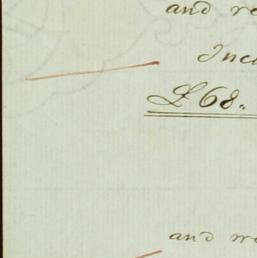 and re
Inc
£68.
and wo